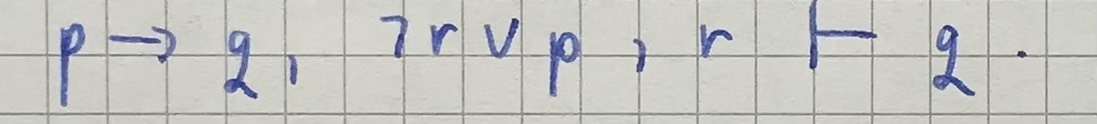 p → q, ¬r ∨ p, r ⊢ q.